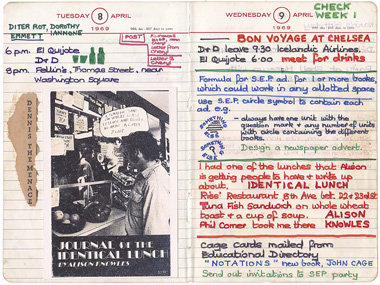 TUESDAY 8 APRIL
1969
DITER ROT, DOROTHY
IANNONE
EMMETT
POST
6 p.m. El Quijote
Dr D
8pm. Fellin's, Thompson Street, near
Washington Square
DENNIS THE MENACE
JOURNAL OF THE
IDENTICAL LUNCH
BY ALISON KNOWLES
WEDNESDAY 9 APRIL
1969
CHECK
WEEK 1
BON VOYAGE AT CHELSEA
Dr D leave 9.30 Icelandic Airlines.
El Quijote 6.00 meet for drinks
Formula for S.E.P. ad. for 1 or more books,
which could work in any allotted space
use S.E.P. circle symbol to contain each
ad e.g.
SOMETHING
ELSE
- always have one unit with the
question mark + any number of units
with circle containing the different
books.
SOMETHING
?
ELSE
Design a newspaper advert.
I had one of the lunches that Alison
is getting people to have + write up
about. IDENTICAL LUNCH
Riss' Restaurant 8th Ave bet. 22 + 23rd St
Tuna Fish Sandwich on whole wheat
toast + a cup of soup. ALISON
Phil Corner took me there KNOWLES
Cage Cards mailed from
Educational Directory
"NOTATIONS" new book, JOHN CAGE
Send out invitations to SEP party